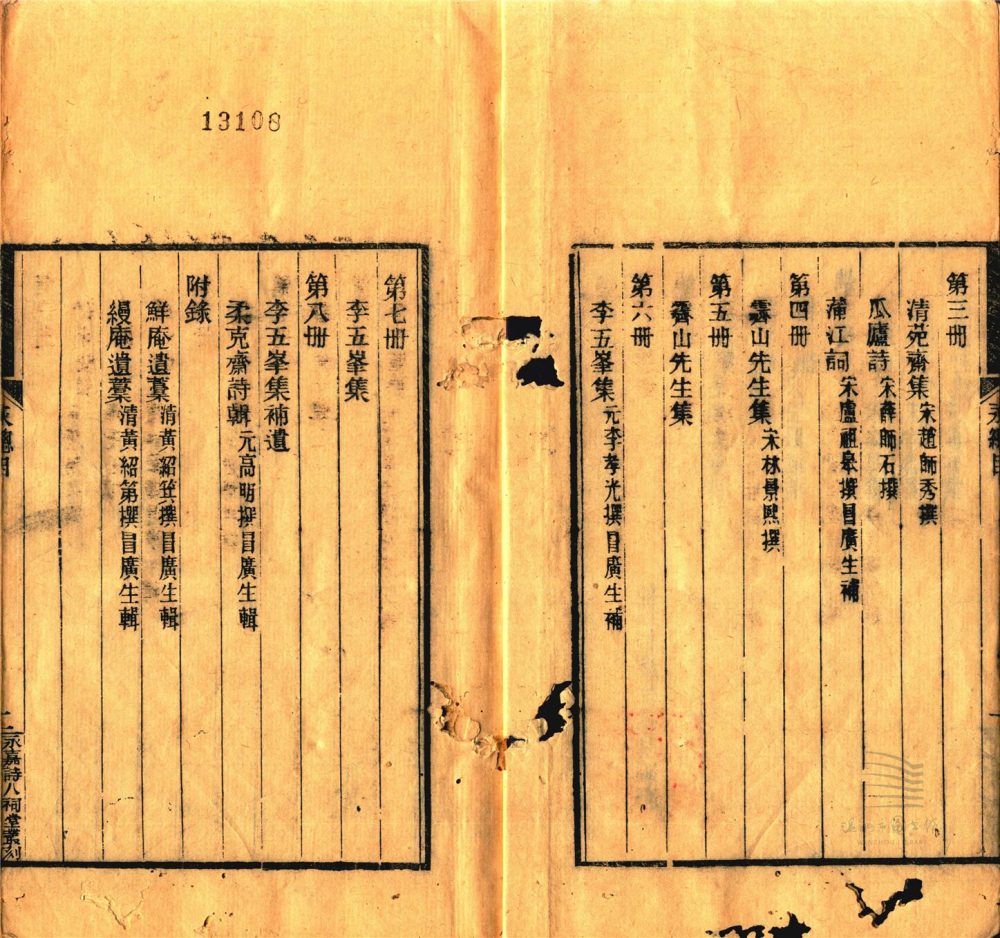 第三冊
清苑齋集 宋趙師秀撰
瓜廬詩 宋薛師石撰
蒲江詞 宋盧祖皋撰冒廣生補
第四冊
霽山先生集 宋林景熙撰
第五冊
霽山先生集
第六冊
李五峯集 元李孝光撰冒廣生補
13108
第七冊
李五峯集
第八冊
李五峯集補遺
柔克齋詩輯 元高明撰冒廣生輯
附錄
鮮庵遺藁 清黃紹箕撰冒廣生輯
縵庵遺藁 清黃紹第撰冒廣生輯
二
永嘉詩人祠堂叢刻